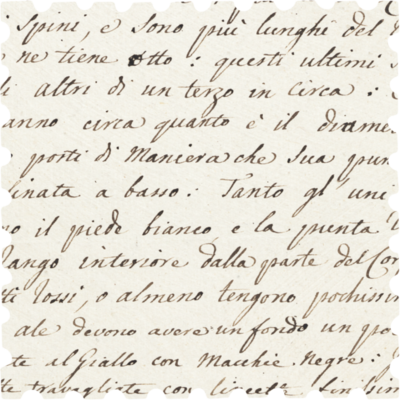 spini, e sono più lunghi del
ne tiene otto: questi ultimi s
li altri di un terzo in circa:
anno circa quanto è il diame
porti di Maniera che sua pun
linata a basso: Tanto gl'uni
no il piede bianco e la punta
lango interiore dalla parte del Cor
tti rossi, o almeno tengono pochissi
ale devono avere un fondo un po
te al Giallo con Macchie Negre:
tte travagliate con